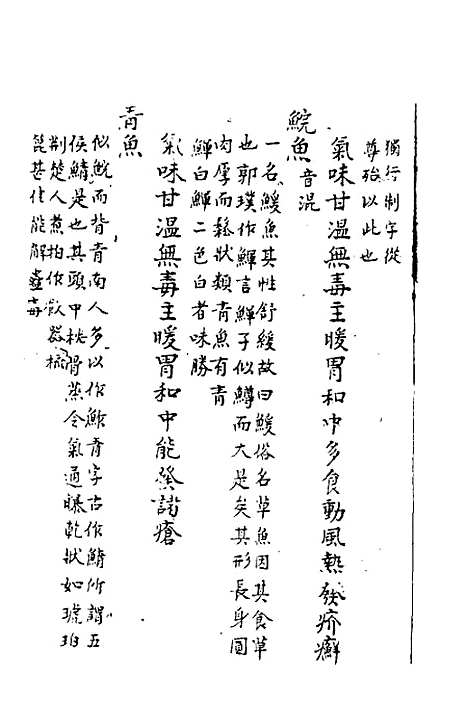 獨行制字從
尊殆以此也
氣味甘溫無毒主暖胃和中多食動風熱發疥癬
鯇魚音混
一名鰀魚其性舒緩故曰鰀俗名草魚因其食草
也郭璞作鯶言鯶子似鱒而大是矣其形長身圓
肉厚而鬆狀類青魚有青
鯶白鯶二色白者味勝
氣味甘溫無毒主暖胃和中能發諸瘡
青魚
似鯇而背青南人多以作鮓青字古作鯖所謂五
侯鯖是也其頭中枕骨蒸令氣通曝乾狀如琥珀
荆楚人煮拍作飲器梳
篦甚佳能解蠱毒